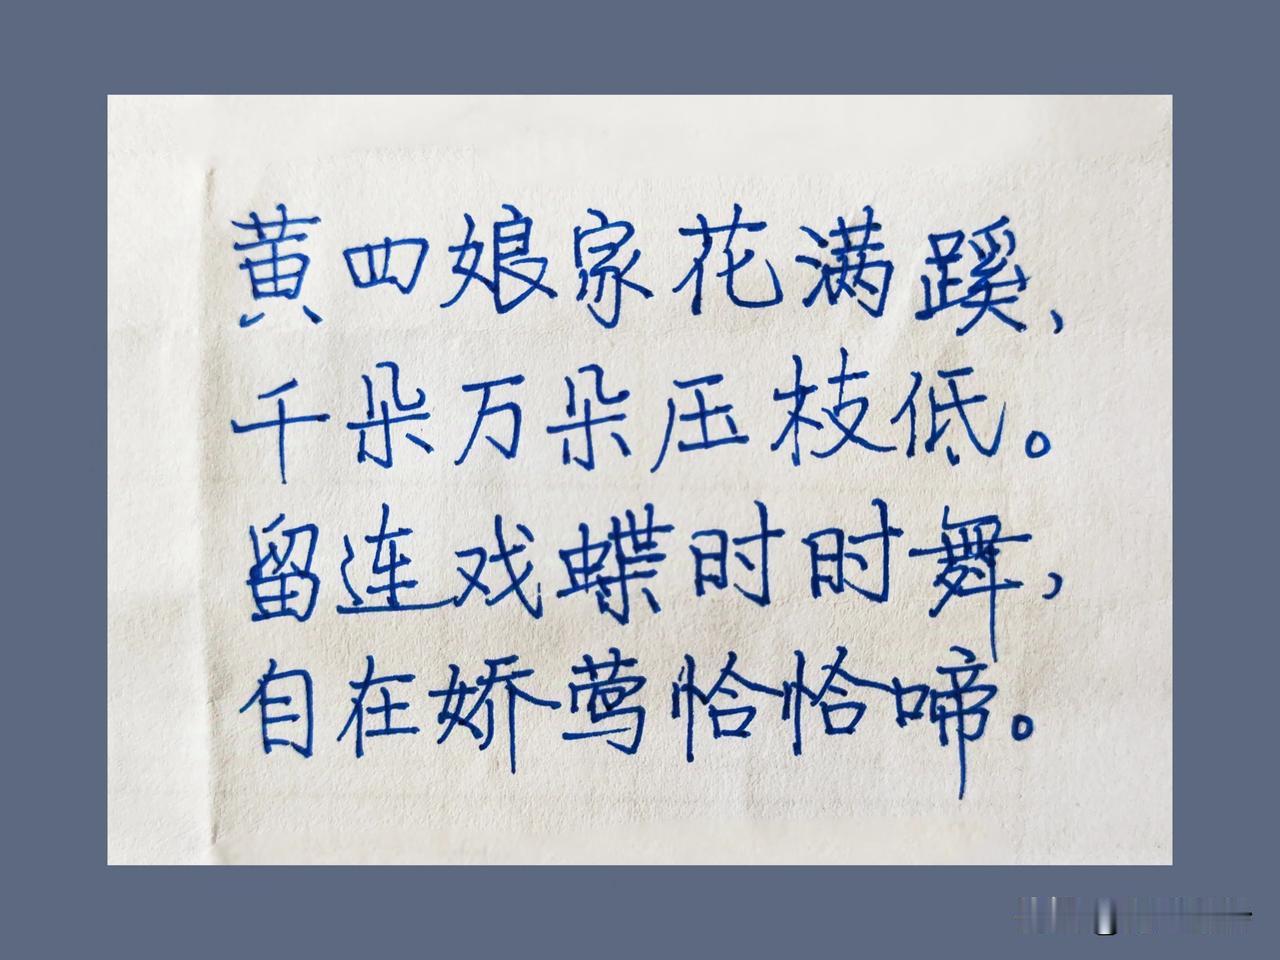 黄四娘家花满蹊，
千朵万朵压枝低。
留连戏蝶时时舞，
自在娇莺恰恰啼。